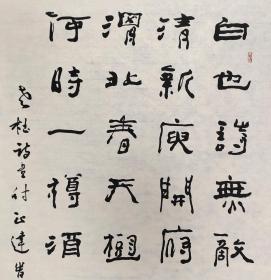 白也詩無敵
清新庾開府
渭北春天樹
何時一樽酒
老杜詩